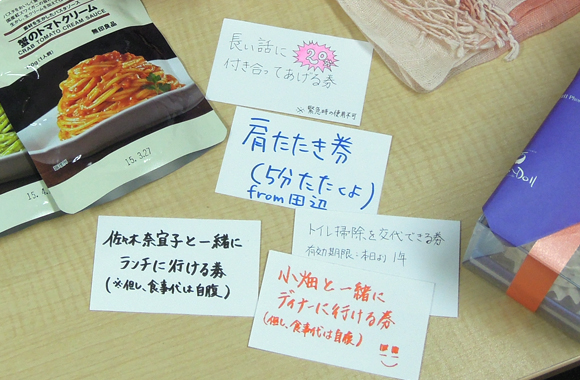 蟹のトマトクリーム
CRAB TOMATO CREAM SAUCE
無印良品
15.3.27
長い話に
20分
付き合ってあげる券
※緊急時の使用不可
肩たたき券
(5分たたくよ)
from田辺
佐々木奈宜子と一緒に
ランチに行ける券
(※但し、食事代は自腹)
トイレ掃除を交代できる券
有効期限:本日より1年
小畑と一緒に
ディナーに行ける券
(但し、食事代は自腹)